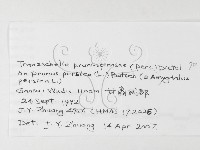 Tranzschelia pruni-spinosae (Pers.) Dietel
on prunus persica (L.) Batsch (= Amygdalus
persica L.)
Gansu: Wudu
24 Sept 1992
J.Y. Zhuang (HMAS
Det. J.-Y. Zhuang 14 Apr 2007